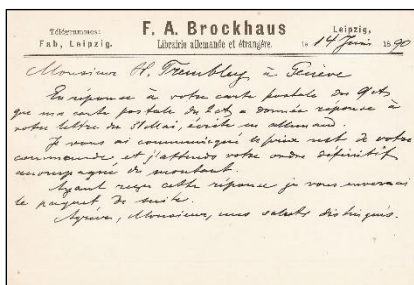 Télégrammes:
Fab, Leipzig.
F. A. Brockhaus
Librairie allemande et étrangère.
Leipzig,
le 14 Juin 1890
Monsieur H. Trembley, à Genève
En réponse à votre carte postale du 9 ct
que ma carte postale du 2 ct a donnée réponse à
votre lettre du 31 Mai, écrite en allemand.
Je vous ai communiqué le prix net de votre
commande, et j'attends votre ordre définitif
accompagné du montant.
Ayant reçu cette réponse je vous enverrai
le paquet de suite.
Agréez, Monsieur, mes saluts distingués.